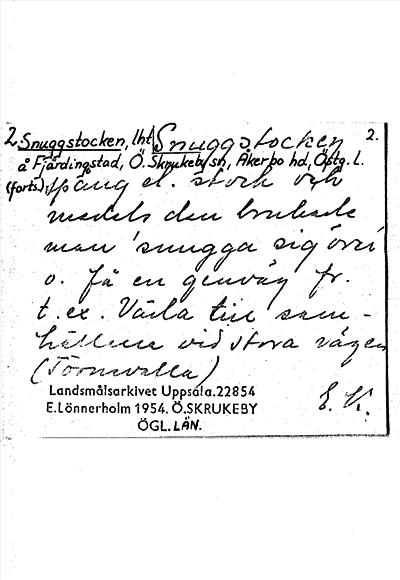 2. Snuggstocken, lht Snuggstocken 2.
å Fjärdingstad, Ö. Skrukeby sn, Åkerbo hd, Östg. L.
(forts.) spång el. stock och
medels den brukade
man 'snugga sig över'
o. få en genväg fr.
t. ex. Värla till sam-
hällena vid stora vägen
(Törnevalla)
Landsmålsarkivet Uppsala.22854
E.Lönnerholm 1954. Ö.SKRUKEBY
ÖGL. LÄN.
E. K.